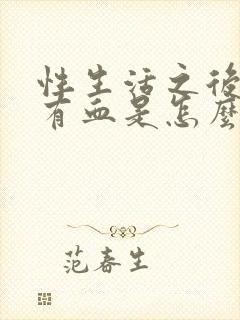 性生活之後
有血是怎麼
范春生